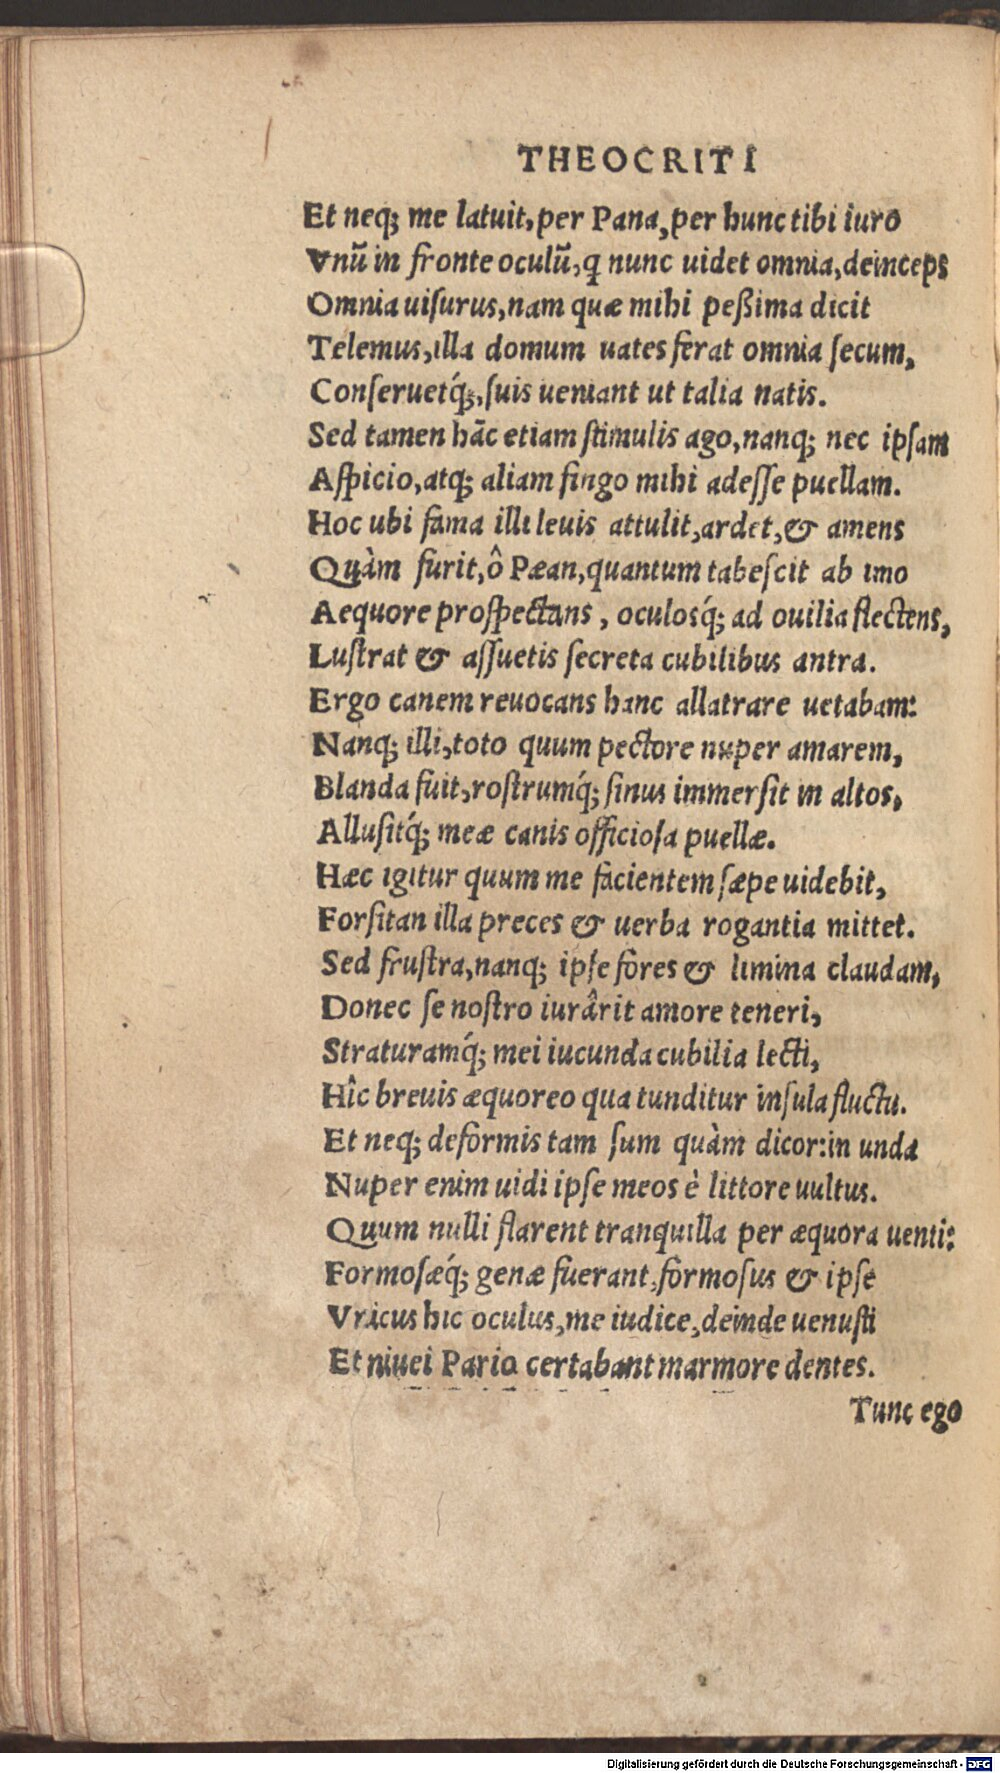 THEOCRITI
Et neq; me latuit, per Pana, per hunc tibi iuro
Vnũ in fronte oculũ, q nunc uidet omnia, deinceps
Omnia uiſurus, nam quæ mihi peßima dicit
Telemus, illa domum uates ferat omnia ſecum,
Conſeruetq́;, ſuis ueniant ut talia natis.
Sed tamen hãc etiam ſtimulis ago, nanq; nec ipſam
Aſpicio, atq; aliam fingo mihi adeſſe puellam.
Hoc ubi fama illi leuis attulit, ardet, & amens
Quàm furit, ô Pæan, quantum tabeſcit ab imo
Aequore proſpectans, oculosq́; ad ouilia flectens,
Luſtrat & aſſuetis ſecreta cubilibus antra.
Ergo canem reuocans hanc allatrare uetabam:
Nanq; illi, toto quum pectore nuper amarem,
Blanda fuit, roſtrumq́; ſinus immerſit in altos,
Alluſitq́; meæ canis officioſa puellæ.
Hæc igitur quum me facientem ſæpe uidebit,
Forſitan illa preces & uerba rogantia mittet.
Sed fruſtra, nanq; ipſe fores & limina claudam,
Donec ſe noſtro iurârit amore teneri,
Straturamq́; mei iucunda cubilia lecti,
Hîc breuis æquoreo qua tunditur inſula fluctu.
Et neq; deformis tam ſum quàm dicor: in unda
Nuper enim uidi ipſe meos è littore uultus.
Quum nulli flarent tranquilla per æquora uenti:
Formoſæq́; genæ fuerant, formoſus & ipſe
Vnicus hic oculus, me iudice, deinde uenuſti
Et niuei Pario certabant marmore dentes.
Tunc ego
Digitalisierung gefördert durch die Deutsche Forschungsgemeinschaft - DFG